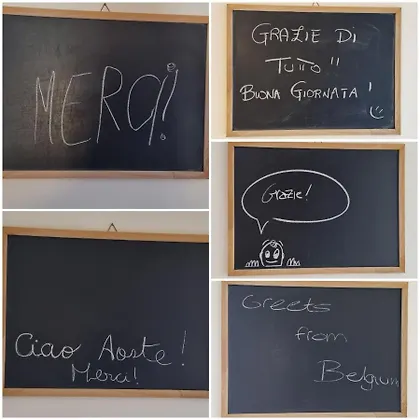 MERCI!
GRAZIE DI
TUTTO!!
BUONA GIORNATA!
Grazie!
Ciao Aoste!
Merci!
Greets
from
Belgium